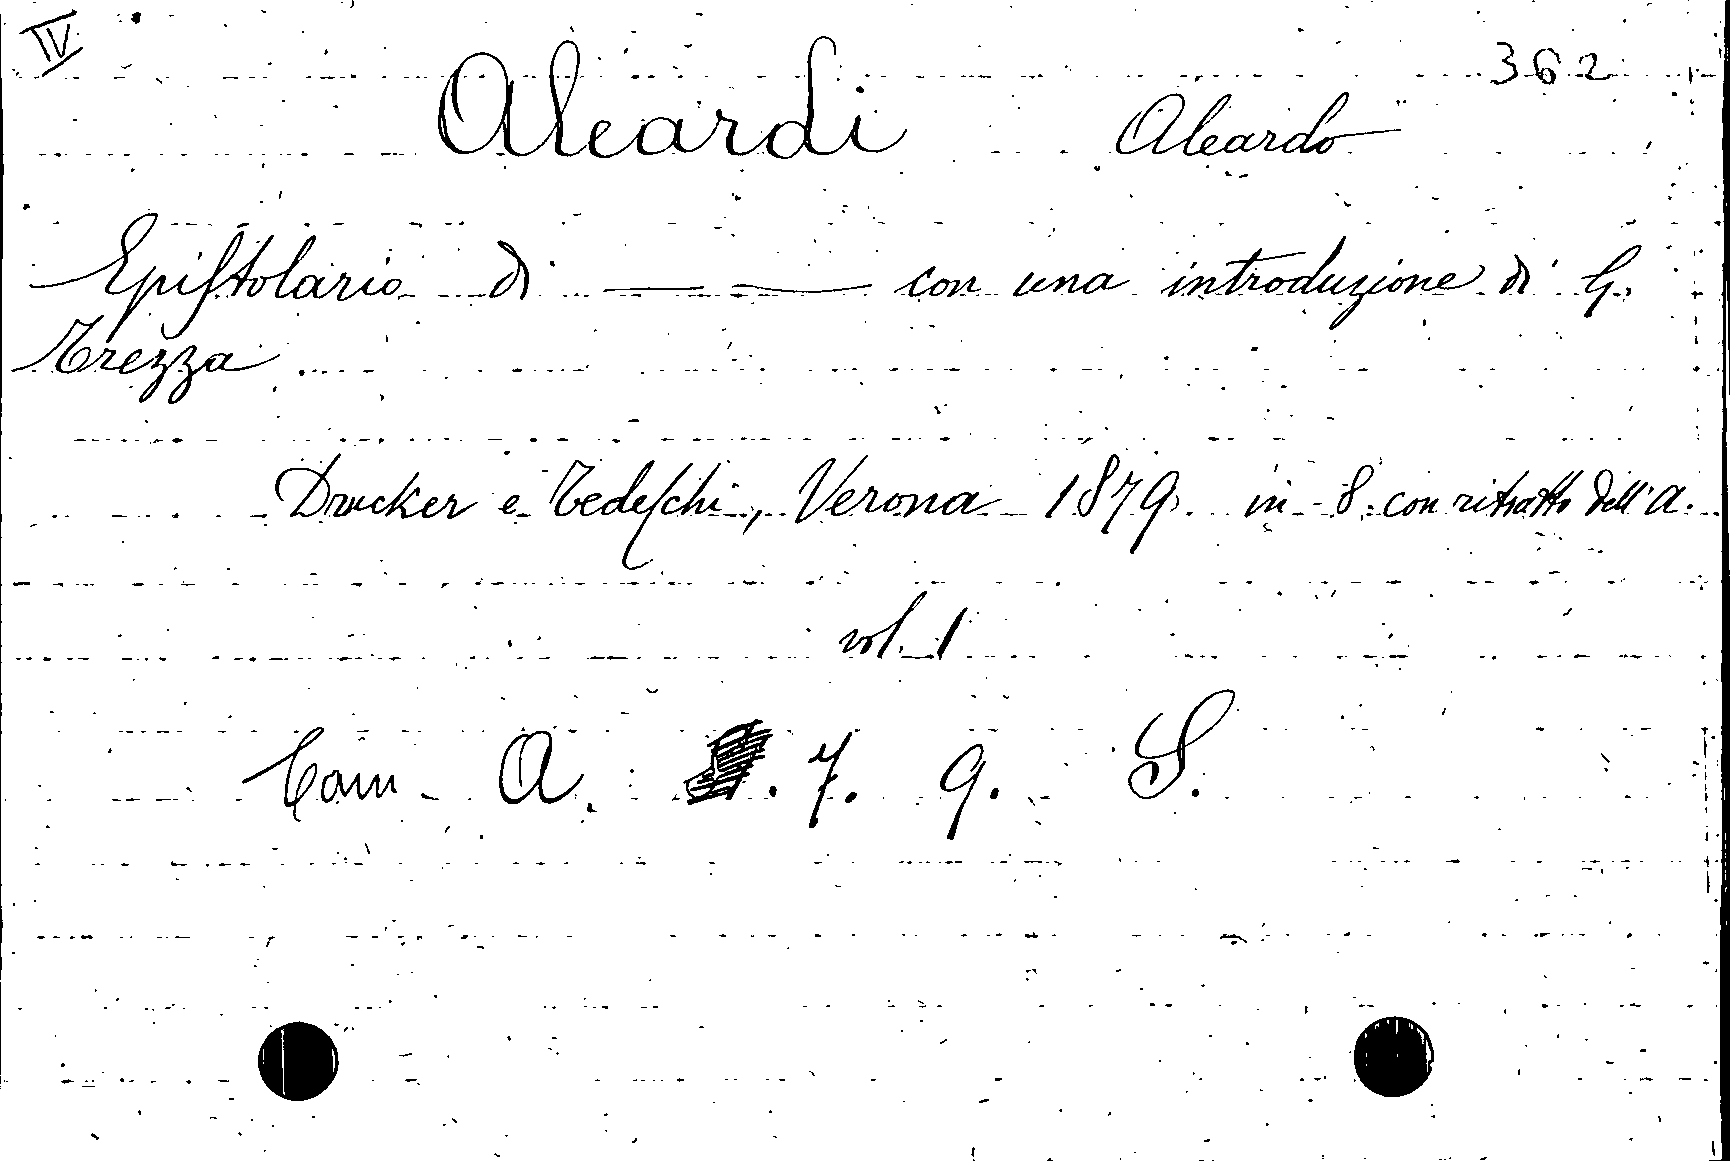 IV
362
Aleardi Aleardo
Epistolario di —— —— con una introduzione di G.
Trezza
Drucker e Tedeschi, Verona 1879. in 8. con ritratto dell'A.
vol. 1
Cam. A. 7. 9. S.